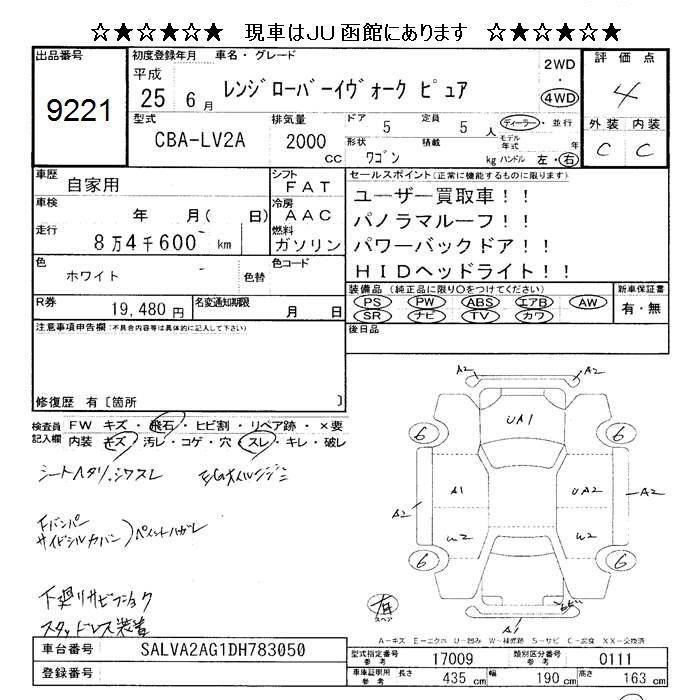 ☆★☆★☆★ 現車はJU函館にあります ☆★☆★☆★
出品番号
9221
初度登録年月 車名・グレード
平成
25 6月 レンジローバーイヴォーク ピュア
2WD
・
4WD
評価点
4
外装 内装
C C
型式
CBA-LV2A
排気量
2000
cc
ドア 5 定員 5 人
形状 ワゴン 積載 kg
ディーラー・並行
モデル年式 年
ハンドル 左・右
車歴 自家用
車検 年 月( 日)
走行 8万4千600 km
色 ホワイト 色替
色コード
シフト FAT
冷房 AAC
燃料 ガソリン
R券 19,480円
名変通知期限 月 日
セールスポイント(正常に機能するものに限ります)
ユーザー買取車!!
パノラマルーフ!!
パワーバックドア!!
HIDヘッドライト!!
装備品(純正品に限り○をつけてください)
PS PW ABS エアB AW
SR ナビ TV カワ
新車保証書
有・無
後日品
注意事項申告欄(不具合内容等は具体的に記入して下さい)
修復歴 有〔箇所 〕
検査員記入欄
FW キズ・飛石・ヒビ割・リペア跡・×要
内装 キズ・汚レ・コゲ・穴・スレ・キレ・破レ
シートヘタリ、シワスレ
E/Gオイルニジミ
Fバンパー
サイドシルカバー)ペイントハガレ
下廻リサビ
スタッドレス装着
A2 A2
UA1
6 6
A1 UA2
A2 A2
W2 W2
6 6
有
スペア
A-キズ E-エクボ U-凹み W-補修跡 S-サビ C-腐食 XX-交換済
車台番号 SALVA2AG1DH783050
登録番号
型式指定番号 参考 17009
類別区分番号 参考 0111
車庫証明用 参考 長さ 435 cm 幅 190 cm 高さ 163 cm